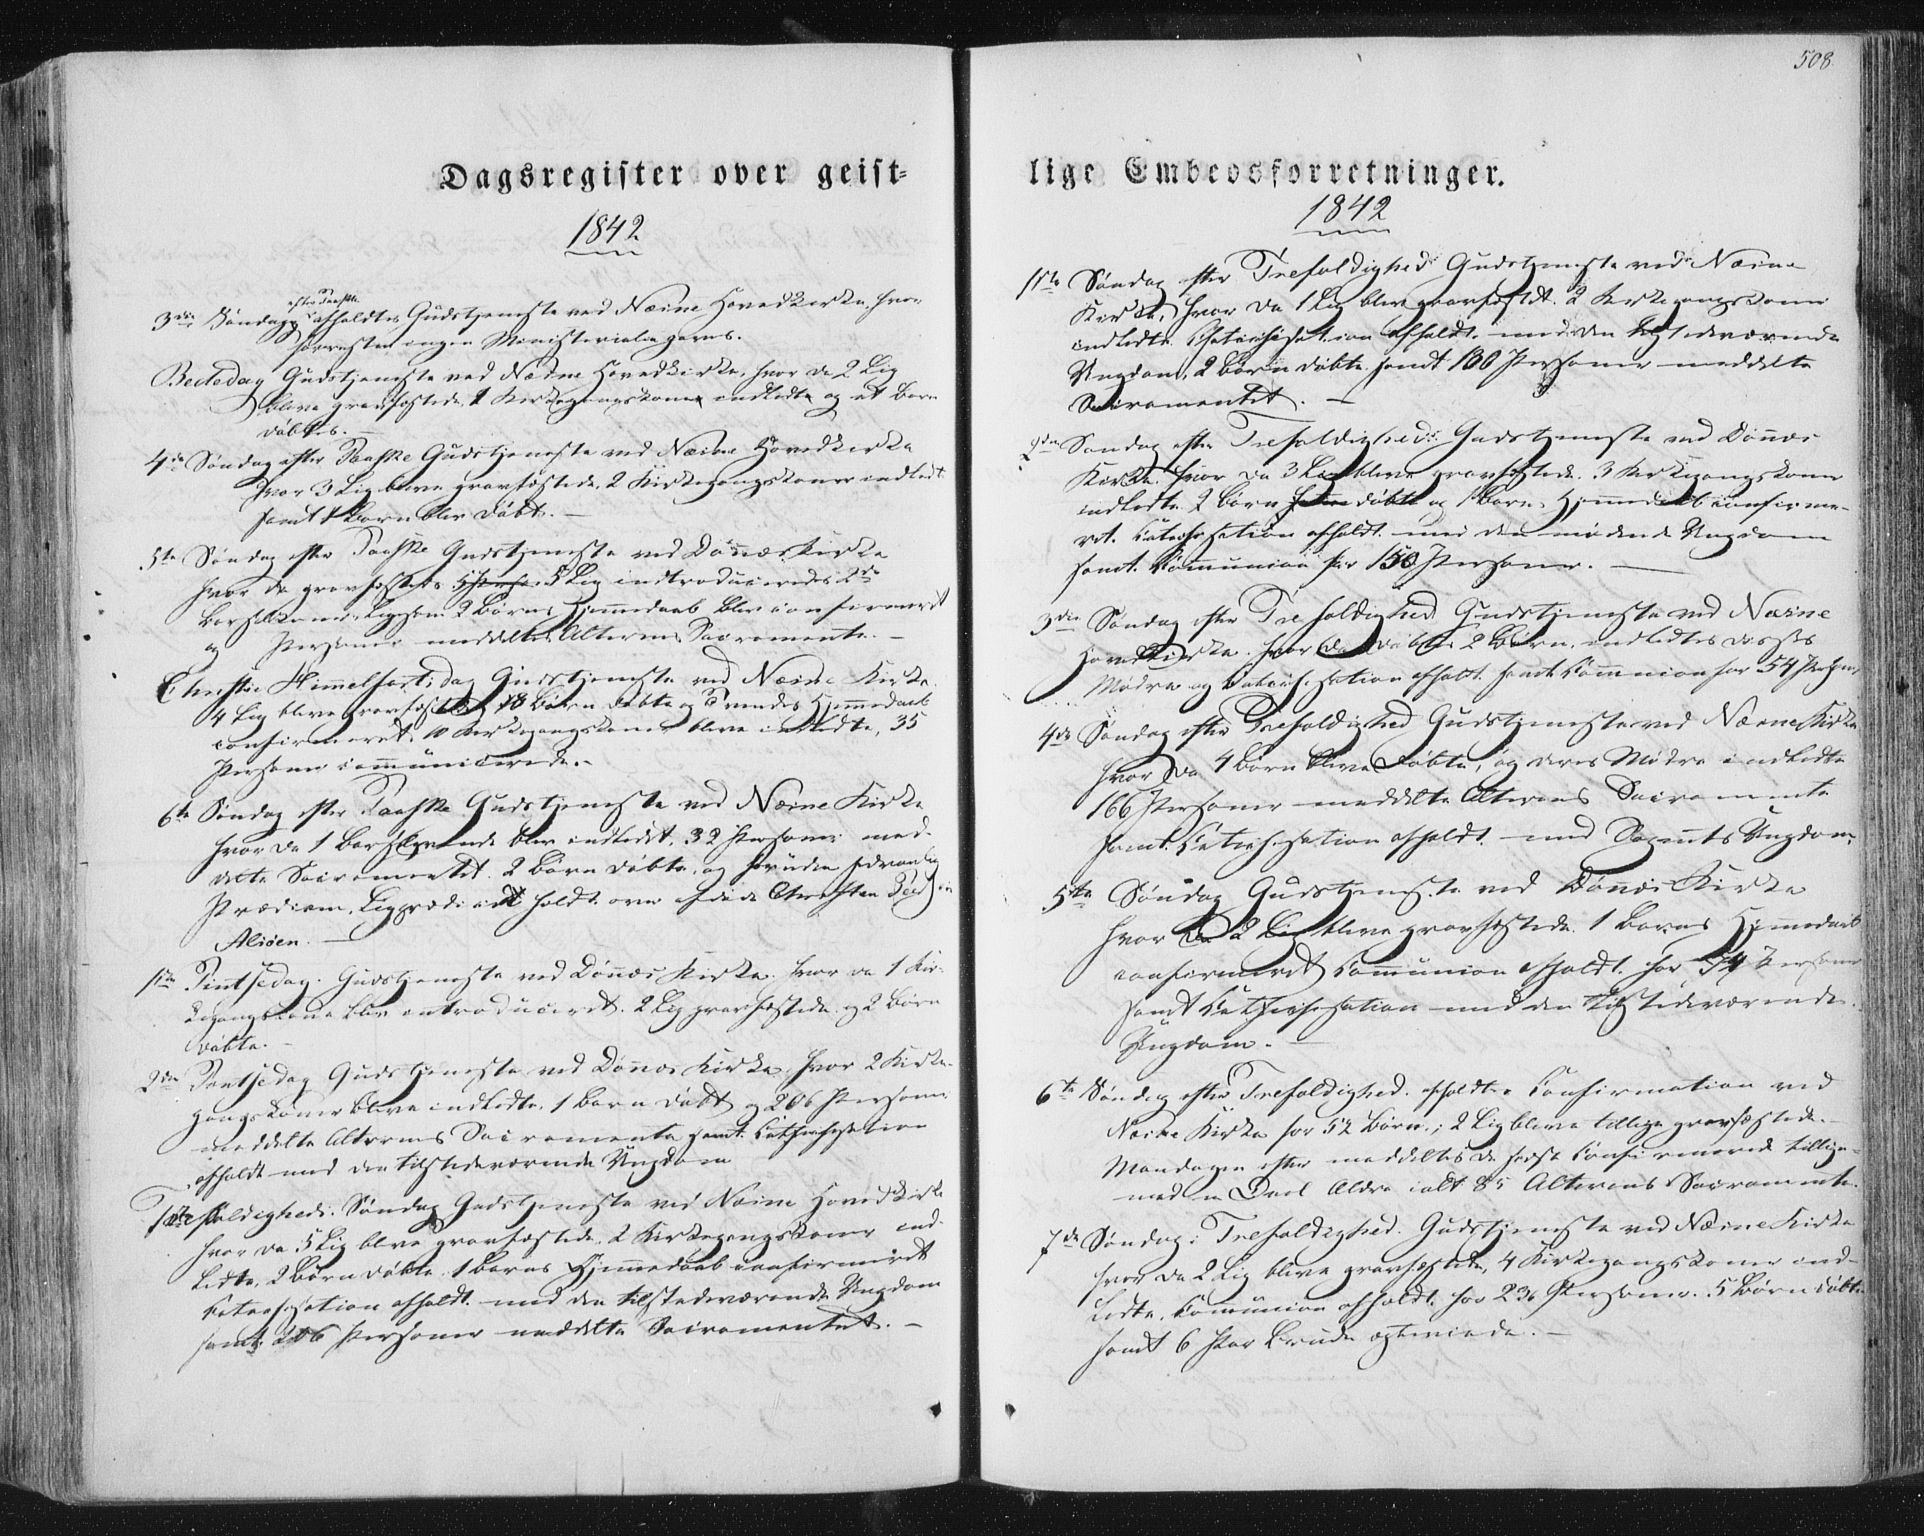 Dagsregister over geist-
1842
efter Paaske
3die Søndag afholdtes Gudstjeneste ved Næsne Hovedkirke, hvor
forresten ingen Ministerialia
Bededag Gudstjeneste ved Næsne Hovedkirke, hvor da 2 Lig
bleve gravfæstede, 1 Kirkegangskone indledt og et Barn
døbtes.
4de Søndag efter Paaske Gudstjeneste ved Næsne Hovedkirke
hvor 3 Lig bleve gravfæstede, 2 Kirkegangskoner indledt
samt 1 Barn blev døbt.
5te Søndag efter Paaske Gudstjeneste ved Dønnæs Kirke
hvor da gravfæstedes 5 Lig introduceredes 2de
Barselkoner, ligesom 2 Børns Hjemmedaab blev confirmeret
og Personer meddeltes Alterens Sacramente.
Christi Himmelfartsdag Gudstjeneste ved Næsne Kirke.
4 Lig bleve gravfæstede, 8 Børn døbte og Hjemmedaab
confirmeret, 10 Kirkegangskoner bleve indledte, 35
Personer communicerede.
6te Søndag efter Paaske Gudstjeneste ved Næsne Kirke
hvor da 1 blev indledet, 32 Personer med-
delte Sacramentet. 2 Børn døbte, og foruden sædvanlig
Prædiken, holdt over afdøde
Alsøen.
1ste Pintsedag. Gudstjeneste ved Dønnæs Kirke. hvor da 1 Kir-
kegangskone blev introduceret. 2 Lig gravfæstede og 2 Børn
døbte.
2den Pentsedag Gudstjeneste ved Dønnæs Kirke, hvor 2 Kirke-
gangskoner bleve indledte, 1 Barn døbt og 206 Personer
meddelte Alterens Sacramente samt Cathechisation
afholdt med den tilstedeværende Ungdom
Trefoldigheds Søndag Gudstjeneste ved Næsne Hovedkirke
hvor da 5 Lig bleve gravfæstede, 2 Kirkegangskoner ind-
ledte, 2 Børn døbte, 1 Barns Hjemmedaab confirmeret
Catechisation afholdt med den tilstedeværende Ungdom
samt 206 Personer meddelte Sacramentet.
508
lige Embedsforretninger.
1842
1ste Søndag efter Trefoldighed. Gudstjeneste ved Næsne
Kirke, hvor da 1 Lig blev gravfæstet. 2 Kirkegangskoner
indledte Catechisation afholdt med den tilstedeværende
Ungdom, 2 Børn døbte samt 100 Personer meddelte
Sacramentet.
2den Søndag efter Trefoldighed. Gudstjeneste ved Dønnæs
Kirke hvor da 3 Lig bleve gravfæstede. 3 Kirkegangskoner
indledte 2 Børn døbte og 1 Barns Hjemmedaab confirme-
ret. Catechisation afholdt med den mødende Ungdom
samt Communion for 150 Personer.
3die Søndag efter Trefoldighed Gudstjeneste ved Næsne
Hovedkirke. hvor da døbtes 2 Børn, indledtes disses
Mødre og Catechisation afholdt samt Communion for 54 Personer
4de Søndag efter Trefoldighed Gudstjeneste ved Næsne Kirke
hvor da 4 Børn bleve døbte, og deres Mødre indledte
166 Personer meddelte Alterens Sacramente
samt Catechisation afholdt med Sognets Ungdom.
5te Søndag Gudstjeneste ved Dønnæs Kirke
hvor da 2 Lig bleve gravfæstede. 1 Barns Hjemmedaab
confirmeret Communion afholdt for 74 Personer
samt Catechisation med den tilstedeværende
Ungdom.
6te Søndag efter Trefoldighed. afholdtes Confirmation ved
Næsne Kirke for 52 Børn; 2 Lig bleve tillige gravfæstede.
Mandagen efter meddeltes de først Confirmerede tillige-
med en Deel Ældre ialt 85 Alterens Sacramente.
7de Søndag Trefoldighed. Gudstjeneste ved Næsne Kirke
hvor da 2 Lig bleve gravfæstede, 4 Kirkegangskoner ind-
ledte, Communion afholdt for 236 Personer. 5 Børn døbte
samt 6 Par Brude egteviede.